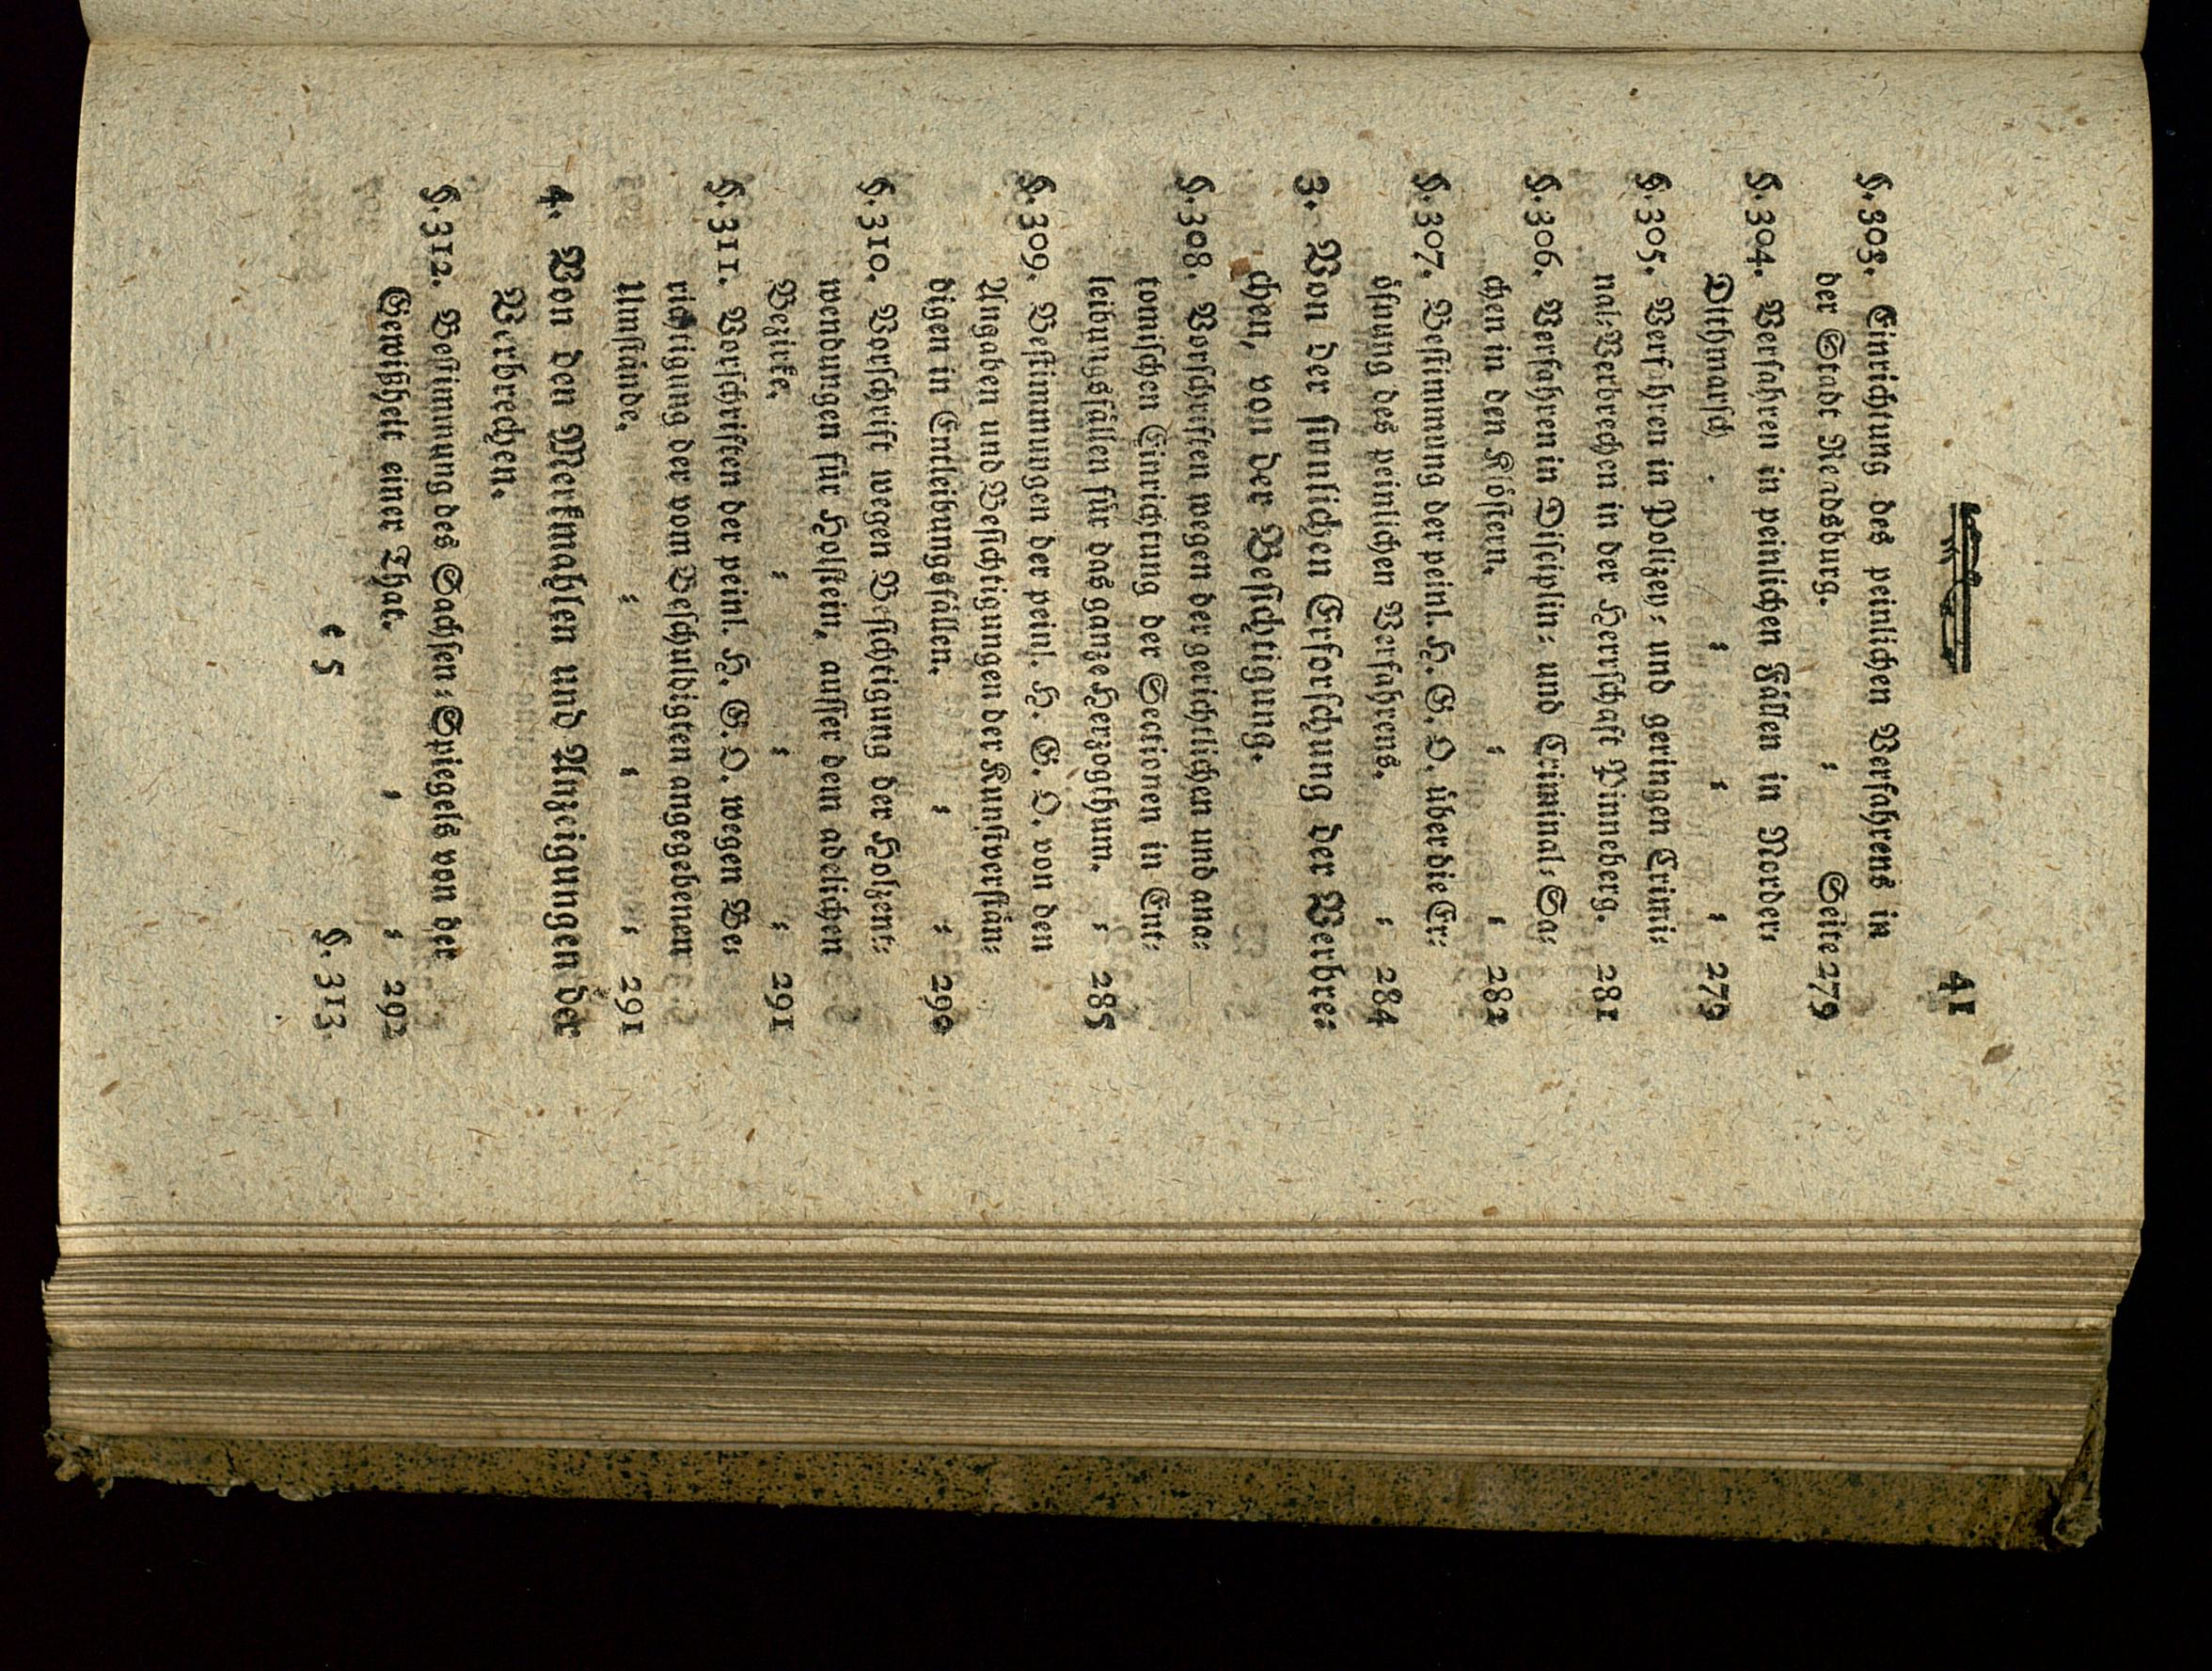 41
§. 303. Einrichtung des peinlichen Verfahrens in
der Stadt Rendsburg. ⸗ Seite 279
§. 304. Verfahren in peinlichen Fällen in Norder⸗
Dithmarsch . ⸗ ⸗ ⸗ 279
§. 305. Verf hren in Polizey⸗ und geringen Crimi⸗
nal⸗Verbrechen in der Herrschaft Pinneberg. 281
§. 306. Verfahren in Disciplin⸗ und Criminal⸗Sa⸗
chen in den Klöstern. ⸗ ⸗ 282
§. 307. Bestimmung der peinl. H. G. O. über die Er⸗
öfnung des peinlichen Verfahrens. ⸗ 284
3. Von der sinnlichen Erforschung der Verbre⸗
chen, von der Besichtigung.
§. 308. Vorschriften wegen der gerichtlichen und ana⸗
tomischen Einrichtung der Sectionen in Ent⸗
leibungsfällen für das ganze Herzogthum. ⸗ 285
§. 309. Bestimmungen der peinl. H. G. O. von den
Angaben und Besichtigungen der Kunstverstän⸗
digen in Entleibungsfällen. ⸗ ⸗ 290
§. 310. Vorschrift wegen Besichtigung der Holzent⸗
wendungen für Holstein, ausser dem adelichen
Bezirke. ⸗ ⸗ ⸗ 291
§. 311. Vorschriften der peinl. H. G. O. wegen Be⸗
richtigung der vom Beschuldigten angegebenen
Umstände. ⸗ ⸗ ⸗ 291
4. Von den Merkmahlen und Anzeigungen der
Verbrechen.
§. 312. Bestimmung des Sachsen⸗Spiegels von der
Gewißheit einer That. ⸗ ⸗ 292
c 5 §. 313.